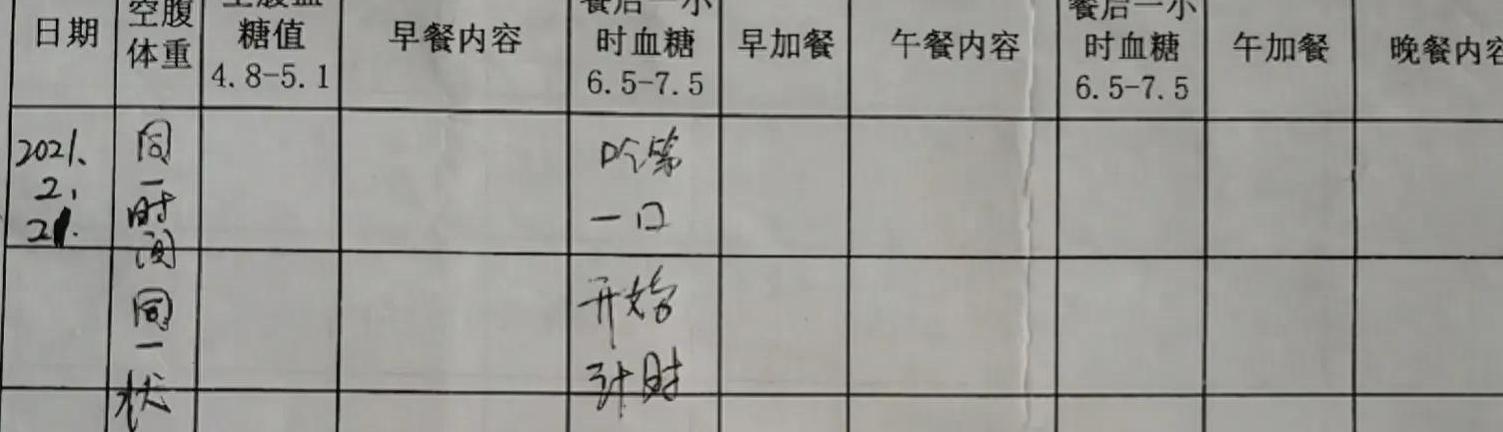 日期
空腹
体重
糖值
4.8-5.1
早餐内容
餐后一小
时血糖
6.5-7.5
早加餐
午餐内容
餐后一小
时血糖
6.5-7.5
午加餐
晚餐内容
2021.
2.
21.
同
一
时
间
同
一
状
吃第
一口
开始
计时